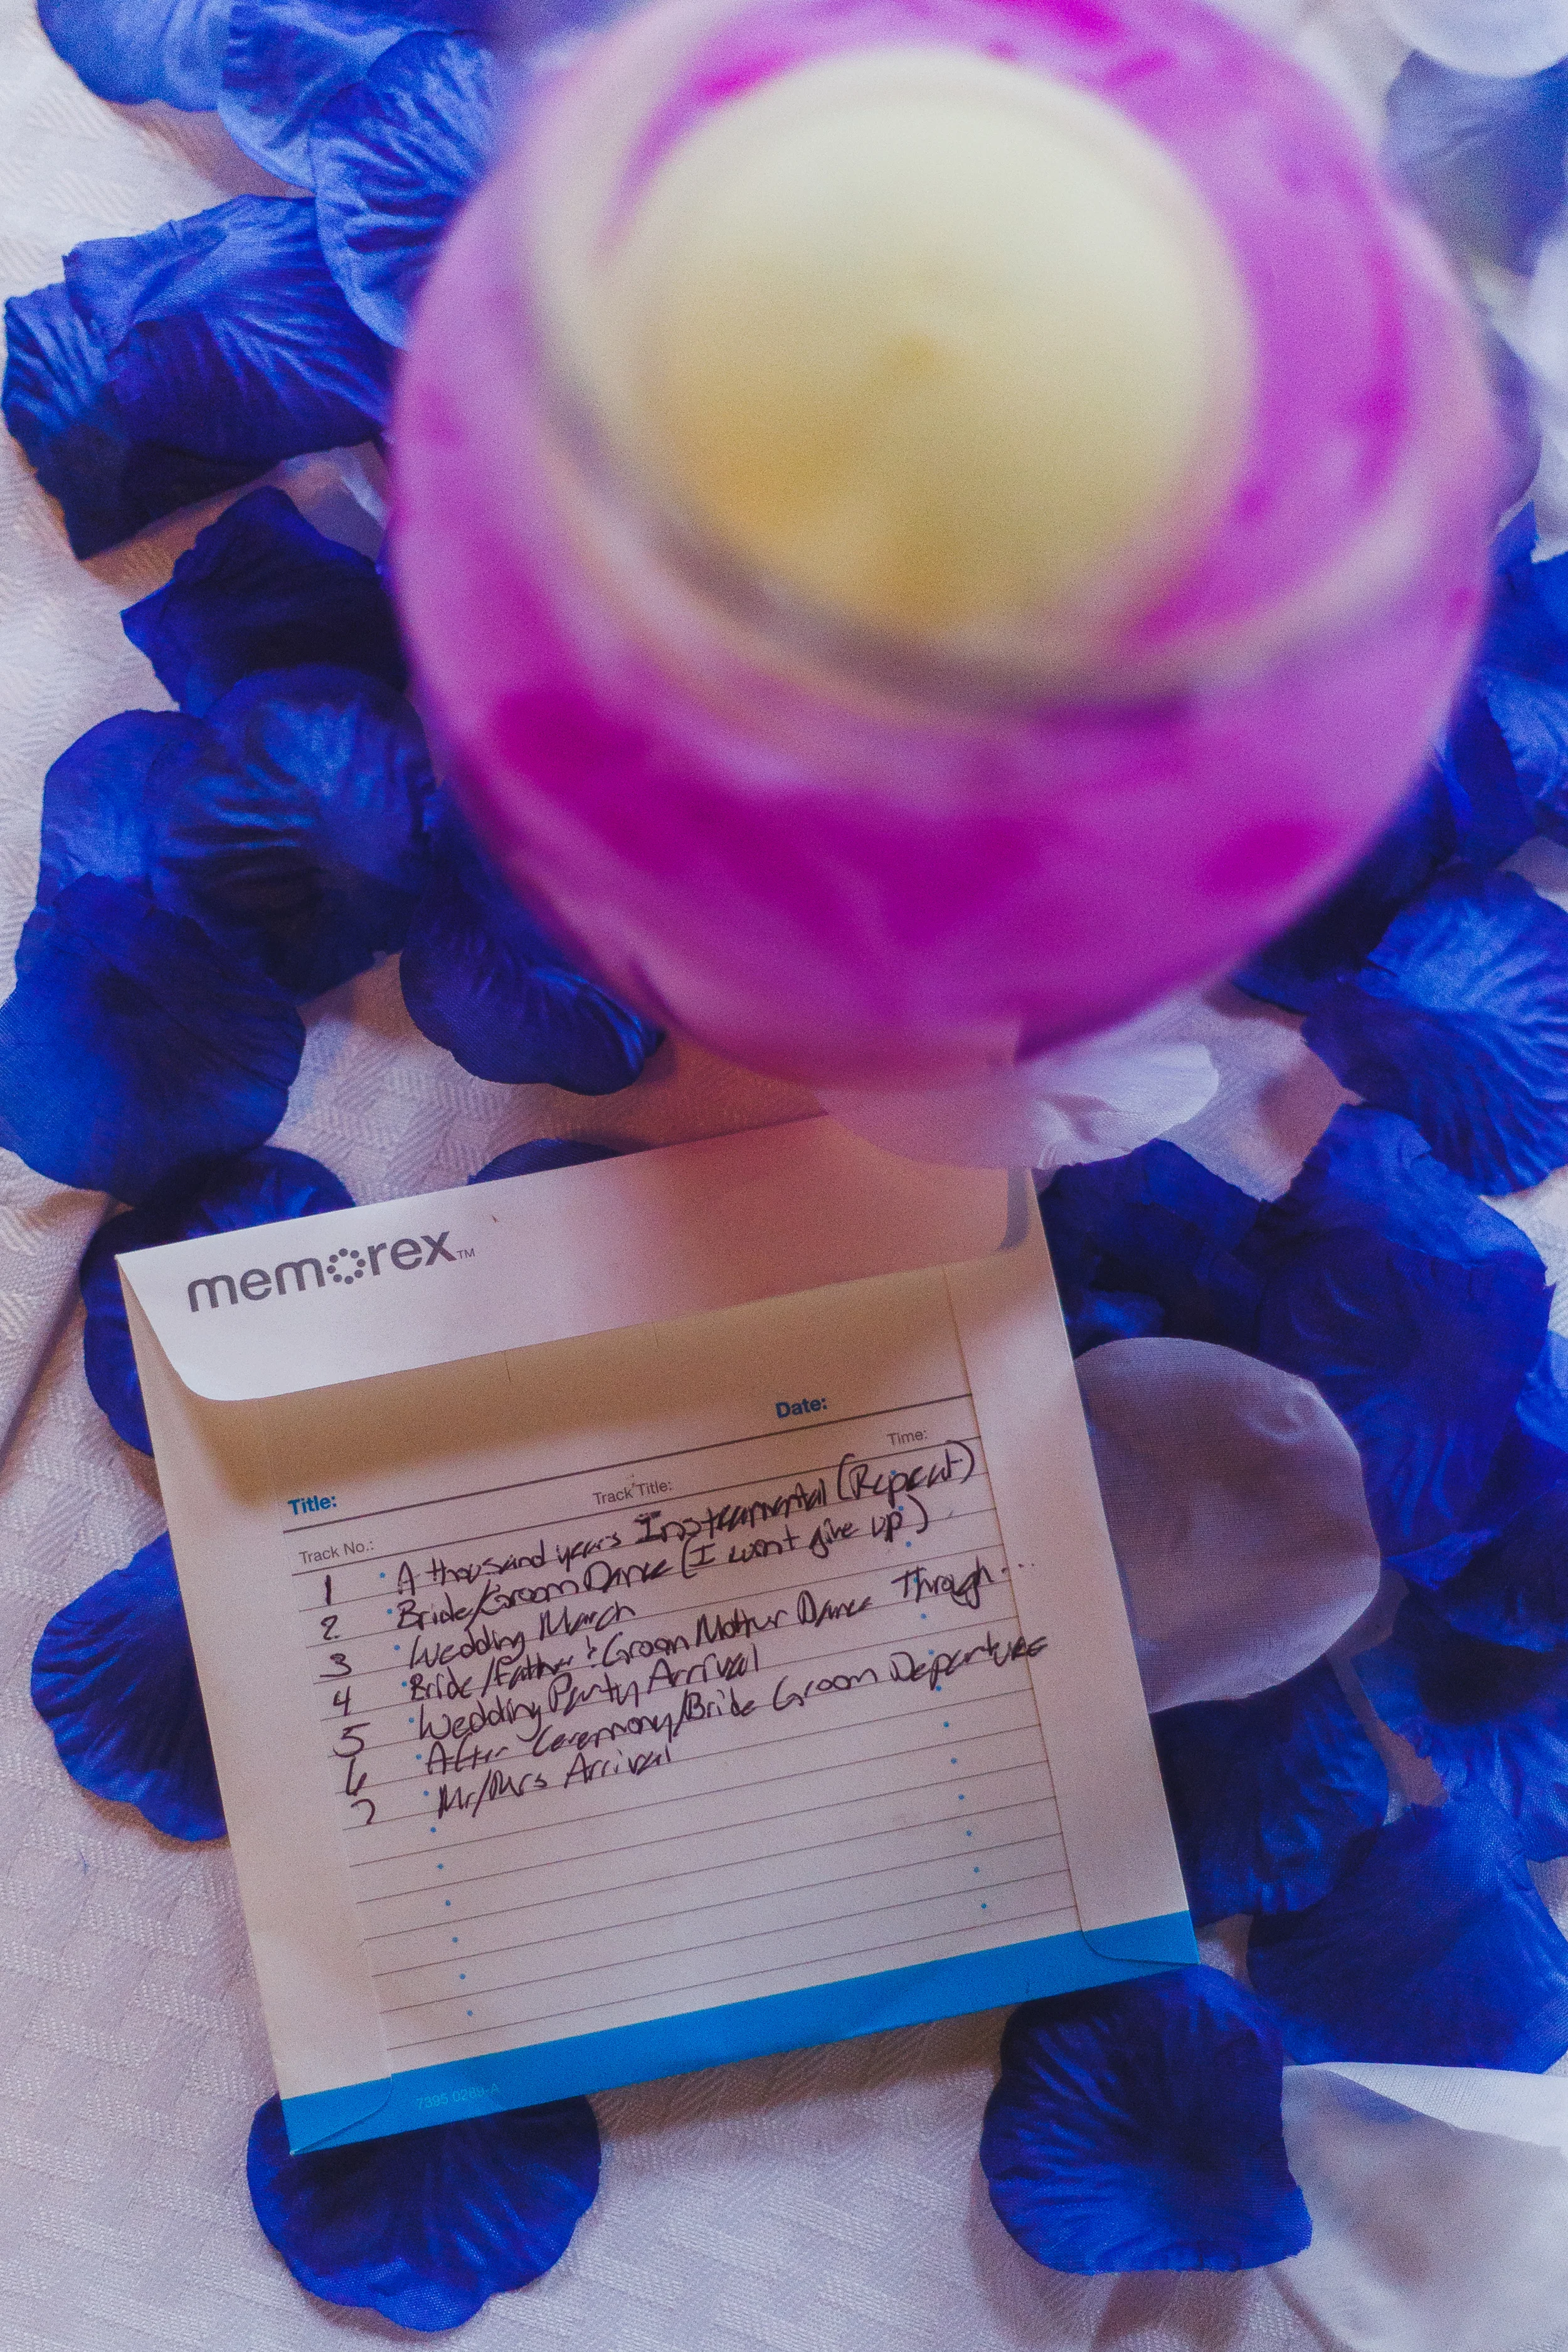 memorex™
Date:
Title:
Time:
Track Title:
Track No.:
1 A thousand years Instramental (Repeat)
2 Bride/Groom Dance (I wont give up)
3 Wedding March
4 Bride/Father & Groom Mother Dance Through...
5 Wedding Party Arrival
6 After Ceremony/Bride Groom Departure
7 Mr/Mrs Arrival
7395 0289-A